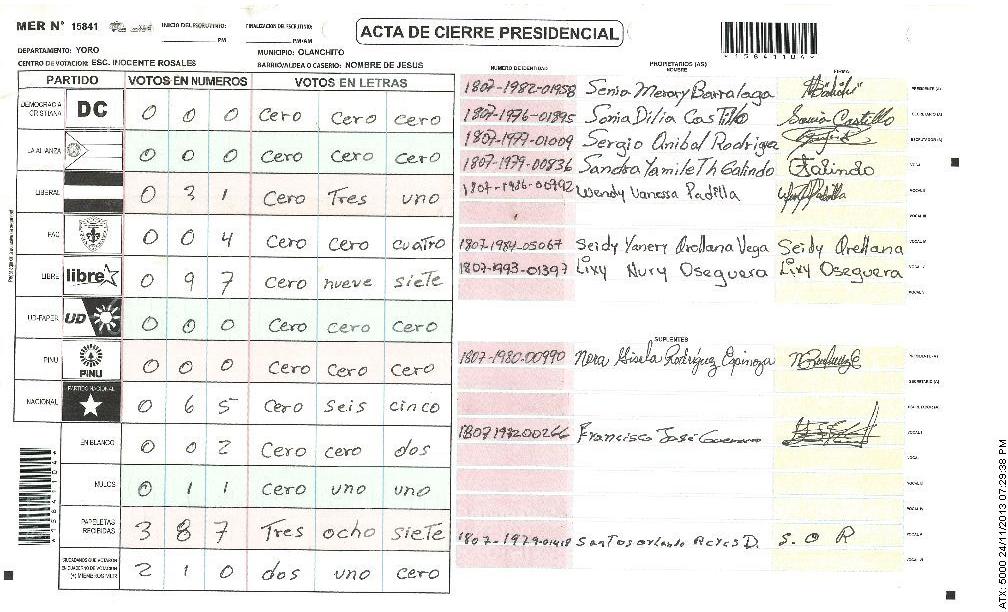 MER N° 15841 INICIO DEL ESCRUTINIO: PM FINALIZACION DEL ESCRUTINIO: PM/AM
ACTA DE CIERRE PRESIDENCIAL
*15841104*
DEPARTAMENTO: YORO MUNICIPIO: OLANCHITO
CENTRO DE VOTACION: ESC. INOCENTE ROSALES BARRIO/ALDEA O CASERIO: NOMBRE DE JESUS
PARTIDO VOTOS EN NUMEROS VOTOS EN LETRAS
DEMOCRACIA CRISTIANA DC 0 0 0 Cero Cero cero
LA ALIANZA 0 0 0 Cero Cero Cero
LIBERAL 0 3 1 Cero Tres uno
PAC 0 0 4 Cero Cero cuatro
LIBRE libre 0 9 7 Cero nueve siete
UD-FAPER UD 0 0 0 Cero cero cero
PINU PINU 0 0 0 Cero Cero Cero
NACIONAL PARTIDO NACIONAL 0 6 5 Cero seis cinco
EN BLANCO 0 0 2 Cero cero dos
NULOS 0 1 1 Cero uno uno
PAPELETAS RECIBIDAS 3 8 7 Tres ocho siete
CIUDADANOS QUE VOTARON EN CUADERNO DE VOTACION (+) MIEMBROS MER 2 1 0 dos uno cero
NUMERO DE IDENTIDAD PROPIETARIOS (AS) NOMBRE FIRMA
1807-1982-01958 Senia Merary Barralaga PRESIDENTE (A)
1807-1976-01895 Sonia Dilia Castillo Sonia Castillo SECRETARIO (A)
1807-1977-01009 Sergio Anibal Rodriguez ESCRUTADOR (A)
1807-1979-00836 Sandra Yamileth Galindo Galindo VOCAL I
1807-1986-00792 Wendy Vanessa Padilla VOCAL II
VOCAL III
1807-1984-05067 Seidy Yanery Orellana Vega Seidy Orellana VOCAL IV
1807-1993-01397 Lixy Nury Oseguera Lixy Oseguera VOCAL V
SUPLENTES
1807-1980-00990 Nora Gisela Rodriguez Espinoza PRESIDENTE (A)
SECRETARIO (A)
ESCRUTADOR (A)
1807198200266 Francisco José Guerrero VOCAL I
1807-1979-01418 Santos orlando Reyes D. S. O R
ATX: 5000 24/11/2013 07:29:38 PM